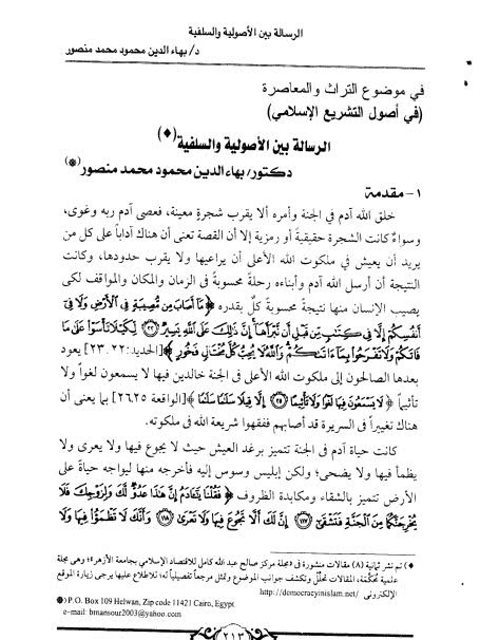 الرسالة بين الأصولية والسلفية
د/ بهاء الدين محمود محمد منصور
في موضوع التراث والمعاصرة
(في أصول التشريع الإسلامي)
الرسالة بين الأصولية والسلفية (♦)
دكتور/ بهاء الدين محمود محمد منصور (*)
١- مقدمة
خلق الله آدم في الجنة وأمره ألا يقرب شجرةٍ معينة، فعصى آدم ربه وغوى،
وسواءٌ كانت الشجرة حقيقيةً أو رمزية إلا أن القصة تعنى أن هناك آداباً على كل من
يريد أن يعيش في ملكوت الله الأعلى أن يراعيها ولا يقرب حدودها، وكانت
النتيجة أن أرسل الله آدم وأبناءه رحلةً محسوبةً في الزمان والمكان والمواقف لكى
يصيب الإنسان منها نتيجةً محسوبةً كلٌ بقدره ﴿مَا أَصَابَ مِن مُّصِيبَةٍ فِي الْأَرْضِ وَلَا فِي
أَنفُسِكُمْ إِلَّا فِي كِتَابٍ مِّن قَبْلِ أَن نَّبْرَأَهَا إِنَّ ذَلِكَ عَلَى اللَّهِ يَسِيرٌ (٢٢) لِكَيْلَا تَأْسَوْا عَلَى مَا
فَاتَكُمْ وَلَا تَفْرَحُوا بِمَا آتَاكُمْ وَاللَّهُ لَا يُحِبُّ كُلَّ مُخْتَالٍ فَخُورٍ﴾ [الحديد: ٢٢، ٢٣] يعود
بعدها الصالحون إلى ملكوت الله الأعلى في الجنة خالدين فيها لا يسمعون لغواً ولا
تأثيماً ﴿لَا يَسْمَعُونَ فِيهَا لَغْوًا وَلَا تَأْثِيمًا (٢٥) إِلَّا قِيلًا سَلَامًا سَلَامًا﴾ [الواقعة ٢٦،٢٥] بما يعنى أن
هناك تغييراً في السريرة قد أصابهم ففقهوا شريعة الله في ملكوته.
كانت حياة آدم في الجنة تتميز برغد العيش حيث لا يجوع فيها ولا يعرى ولا
يظمأ فيها ولا يضحى؛ ولكن إبليس وسوس إليه فأخرجه منها ليواجه حياةً على
الأرض تتميز بالشقاء ومكابدة الظروف ﴿فَقُلْنَا يَا آدَمُ إِنَّ هَذَا عَدُوٌّ لَّكَ وَلِزَوْجِكَ فَلَا
يُخْرِجَنَّكُمَا مِنَ الْجَنَّةِ فَتَشْقَى (١١٧) إِنَّ لَكَ أَلَّا تَجُوعَ فِيهَا وَلَا تَعْرَى (١١٨) وَأَنَّكَ لَا تَظْمَؤُا فِيهَا وَلَا
♦) تم نشر ثمانية (٨) مقالات منشورة في «مجلة مركز صالح عبد الله كامل للاقتصاد الإسلامي بجامعة الأزهر»؛ وهى مجلة
علمية مُحَكَّمَة، المقالات تحلِّل وتكشف جوانب الموضوع وتمثل مرجعاً تفصيلياً له؛ للاطلاع عليها يرجى زيارة الموقع
الإلكتروني /http://democracyinislam.net
*) P.O. Box 109 Helwan, Zip code 11421 Cairo, Egypt
e-mail: bmansour2003@yahoo.com
٢١٣